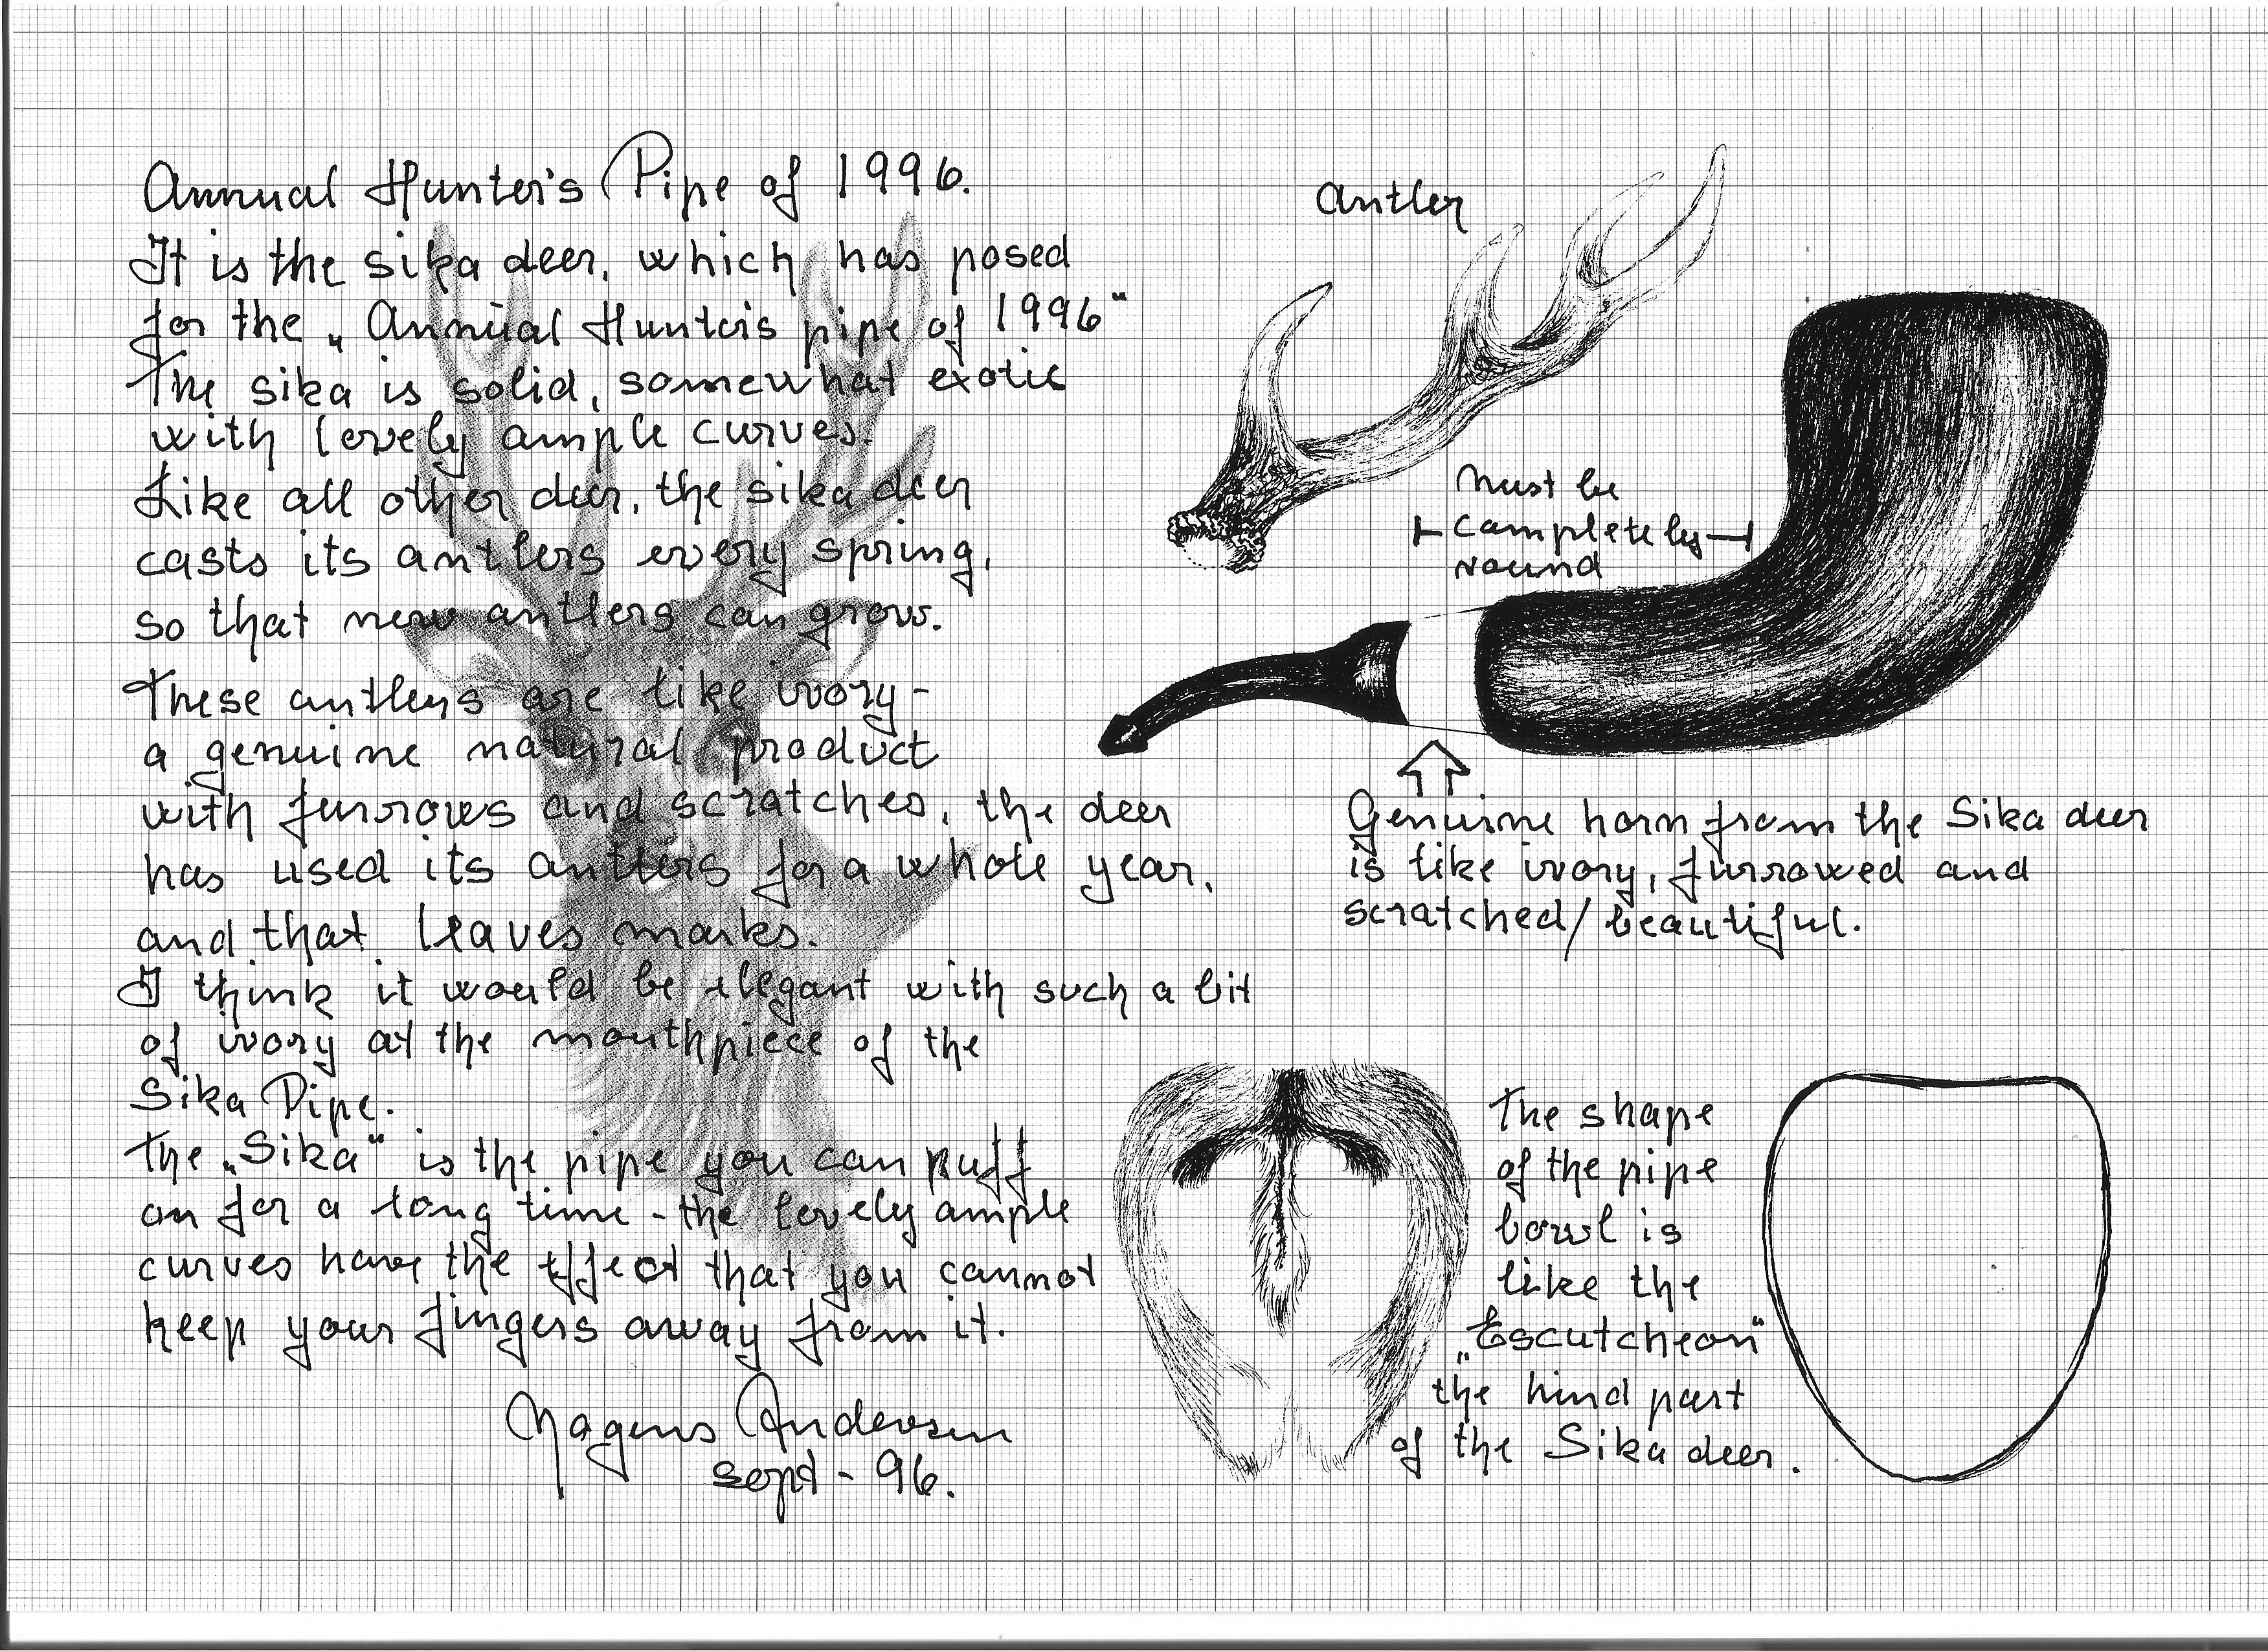 Annual Hunter's Pipe of 1996.
It is the sika deer, which has posed
for the „Annual Hunter's pipe of 1996"
The sika is solid, somewhat exotic
with lovely ample curves.
Like all other deer, the sika deer
casts its antlers every spring,
so that new antlers can grow.
These antlers are like ivory-
a genuine natural product
with furrows and scratches, the deer
has used its antlers for a whole year,
and that leaves marks.
I think it would be elegant with such a bit
of ivory at the mouthpiece of the
Sika Pipe.
The „Sika" is the pipe you can puff
on for a long time - the lovely ample
curves have the effect that you cannot
keep your fingers away from it.
Mogens Andersen
sept - 96.
Antler
Must be
completely
round
Genuine horn from the Sika deer
is like ivory, furrowed and
scratched/beautiful.
The shape
of the pipe
bowl is
like the
„Escutcheon"
the hind part
of the Sika deer.